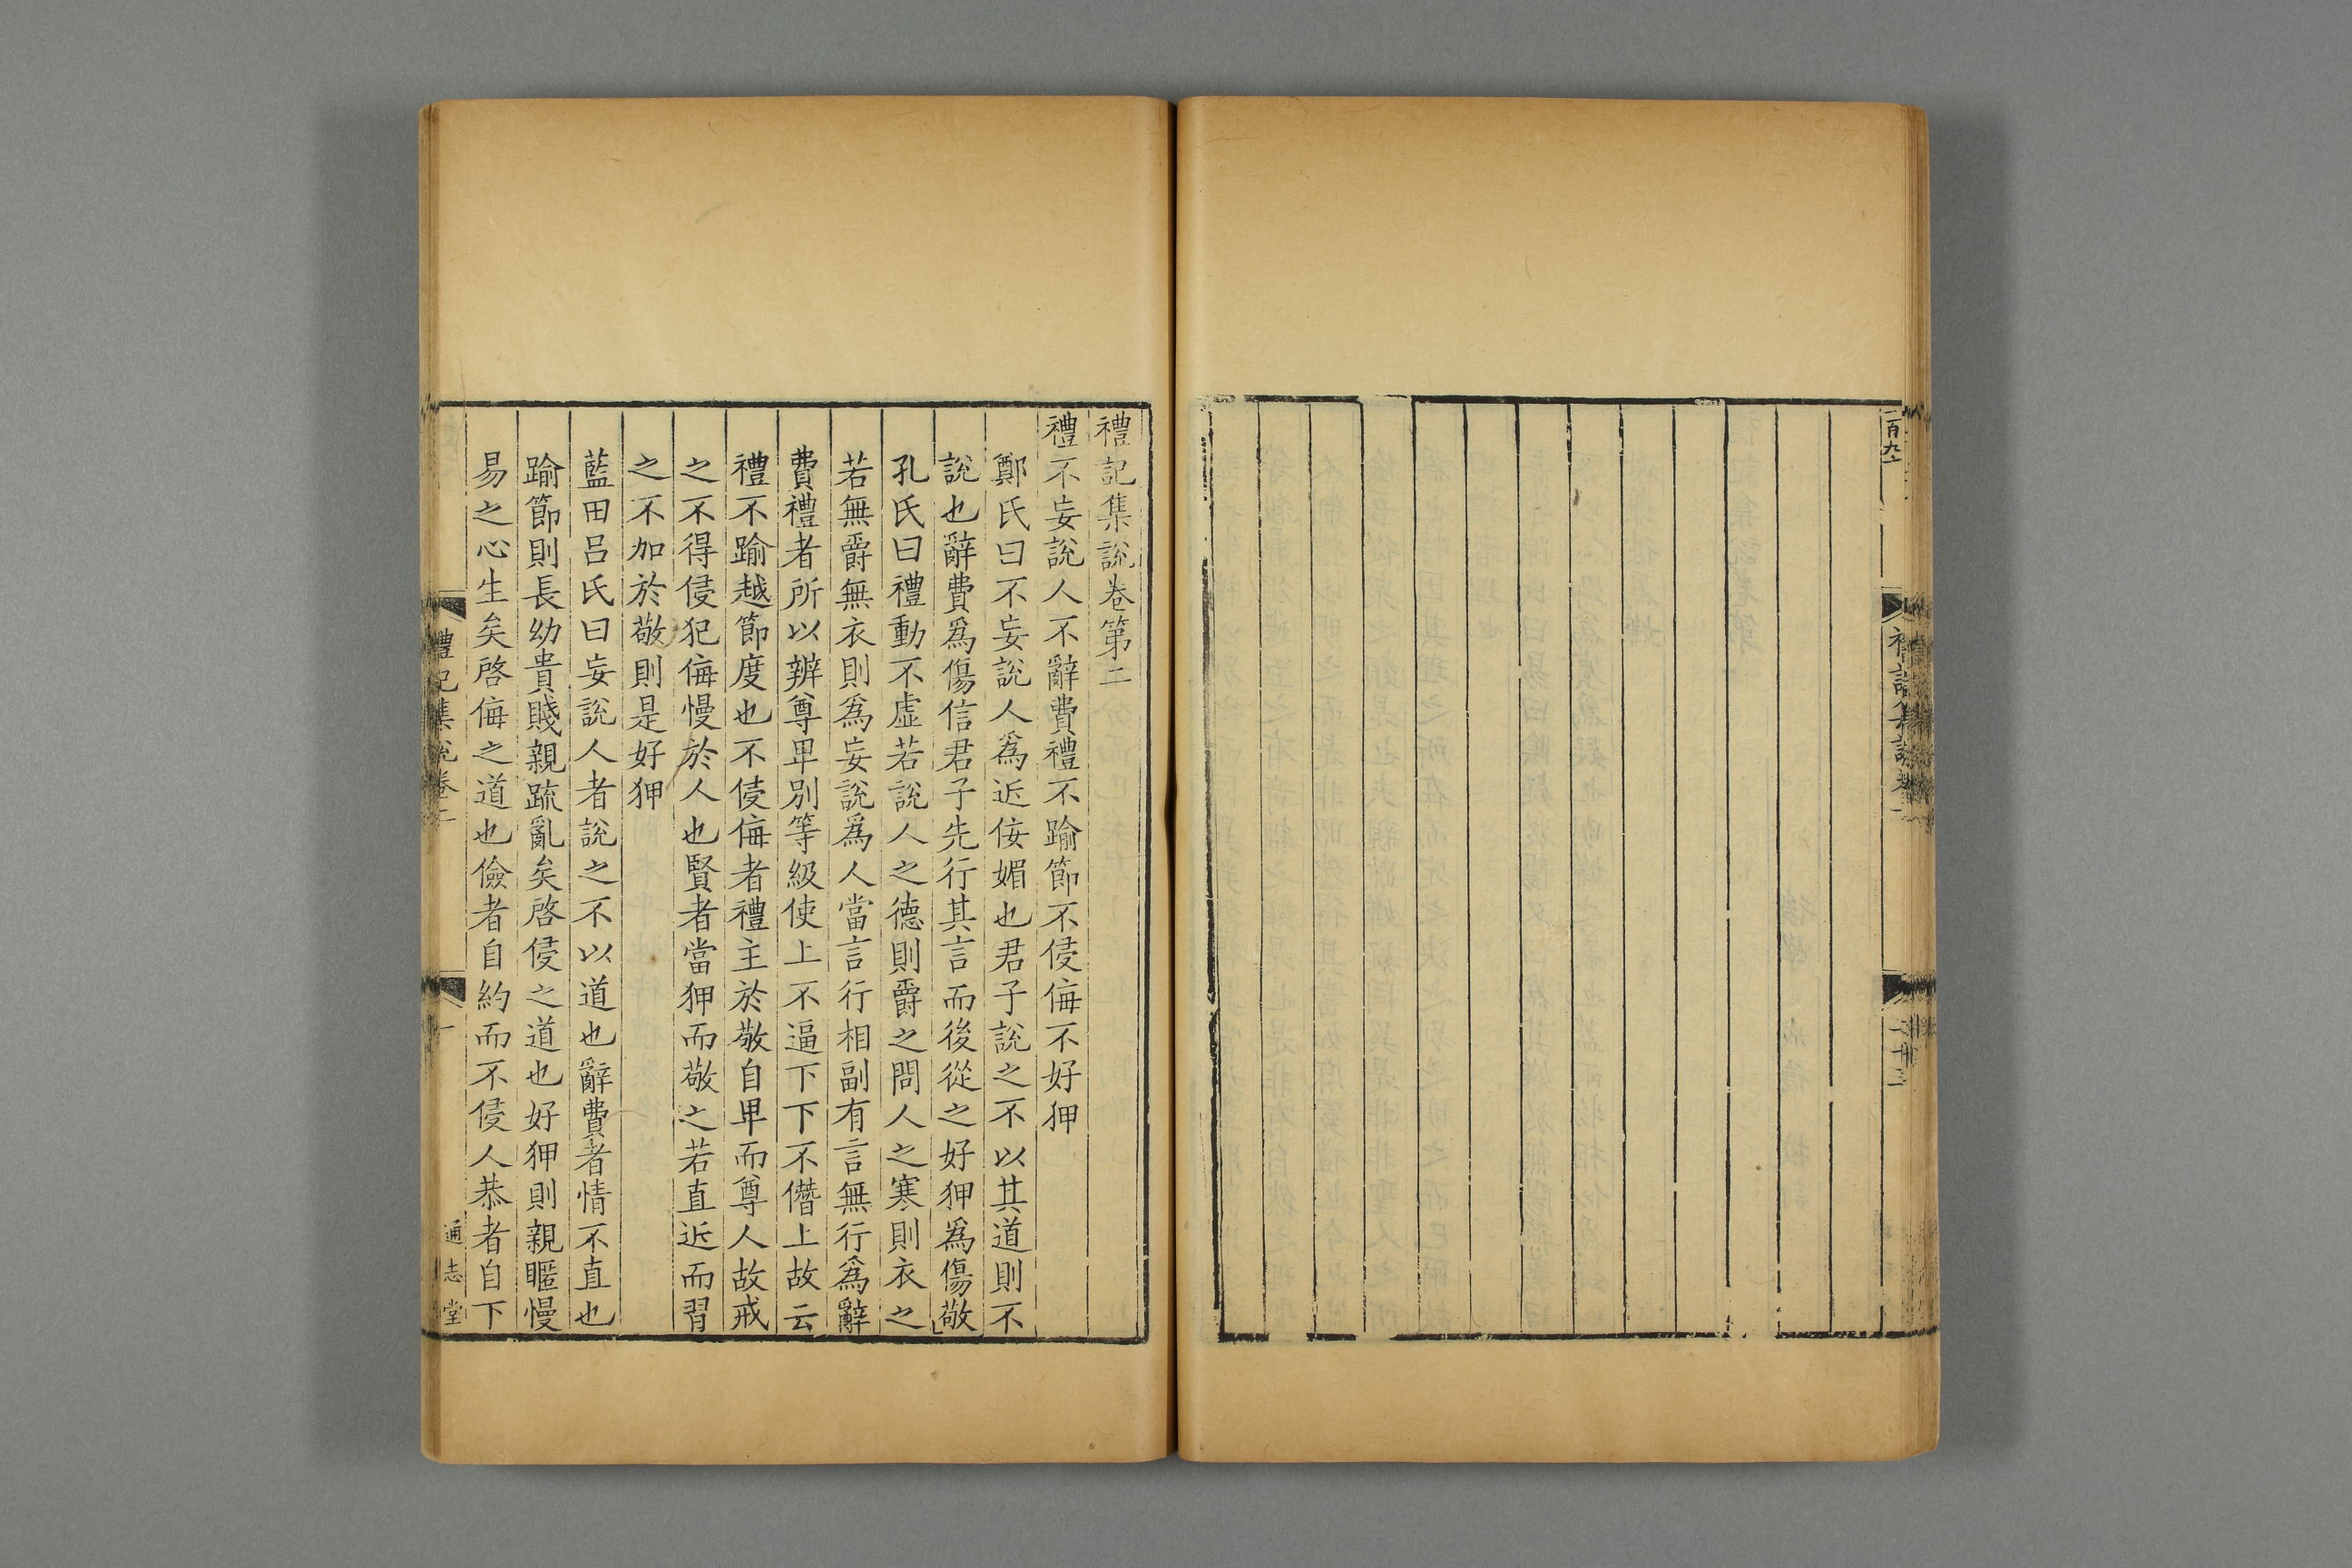 禮記集說卷第二
禮不妄說人不辭費禮不踰節不侵侮不好狎
鄭氏曰不妄說人爲近佞媚也君子說之不以其道則不
說也辭費爲傷信君子先行其言而後從之好狎爲傷敬
孔氏曰禮動不虛若說人之德則爵之問人之寒則衣之
若無爵無衣則爲妄說爲人當言行相副有言無行爲辭
費禮者所以辨尊卑別等級使上不逼下下不僭上故云
禮不踰越節度也不侵侮者禮主於敬自卑而尊人故戒
之不得侵犯侮慢於人也賢者當狎而敬之若直近而習
之不加於敬則是好狎
藍田呂氏曰妄說人者說之不以道也辭費者情不直也
踰節則長幼貴賤親疏亂矣啓侵之道也好狎則親暱慢
易之心生矣啓侮之道也儉者自約而不侵人恭者自下
禮記集說卷二
一
通志堂